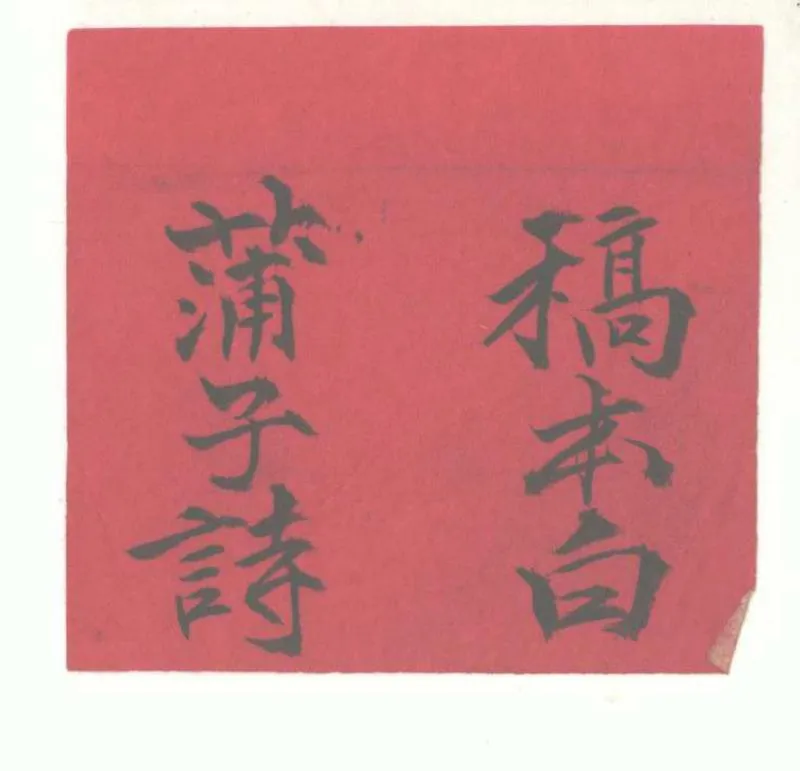 稿本白
蒲子詩